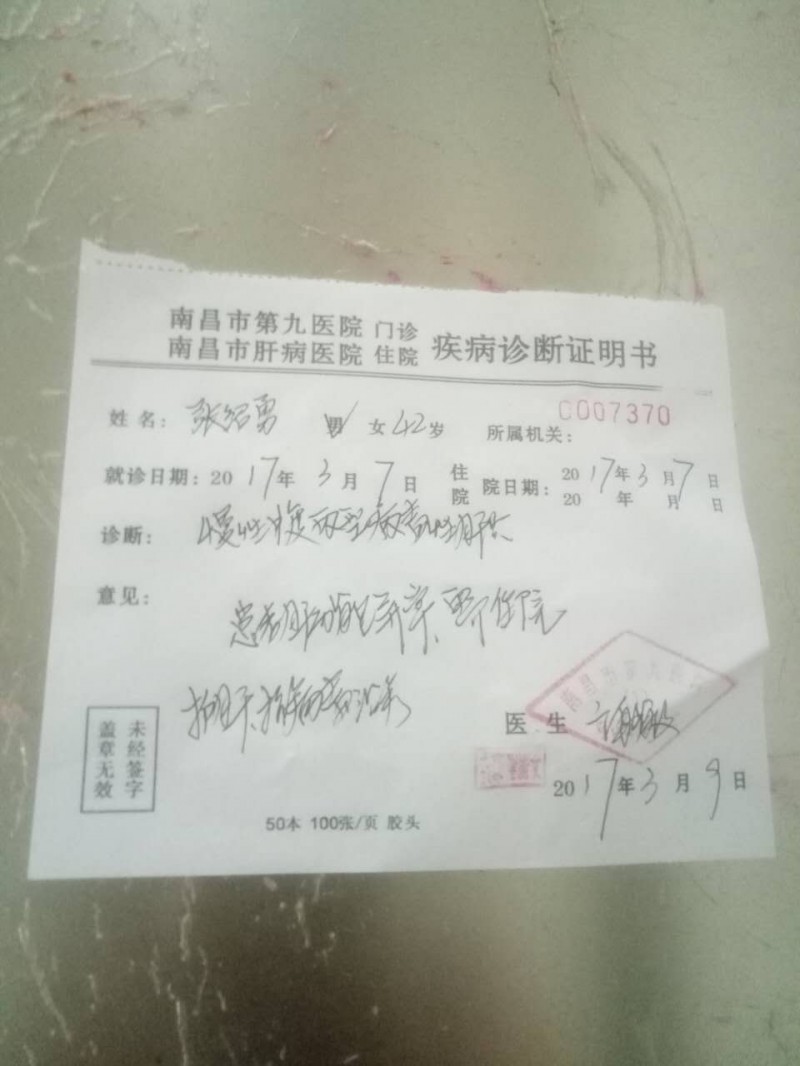 南昌市第九医院 门诊
南昌市肝病医院 住院 疾病诊断证明书
C007370
姓名: 张绍勇 男 女 42岁 所属机关:
就诊日期: 2017年3月7日 住院 院日期: 2017年3月7日
20 年 月 日
诊断: 慢性 病毒性肝炎
意见: 患者 住院
医生
2017年3月9日
未经签字
盖章无效
50本 100张/页 胶头